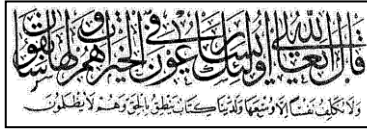 قال الله تعالى أولئك يسارعون في الخيرات وهم لها سابقون
ولا نكلف نفسا إلا وسعها ولدينا كتاب ينطق بالحق وهم لا يظلمون